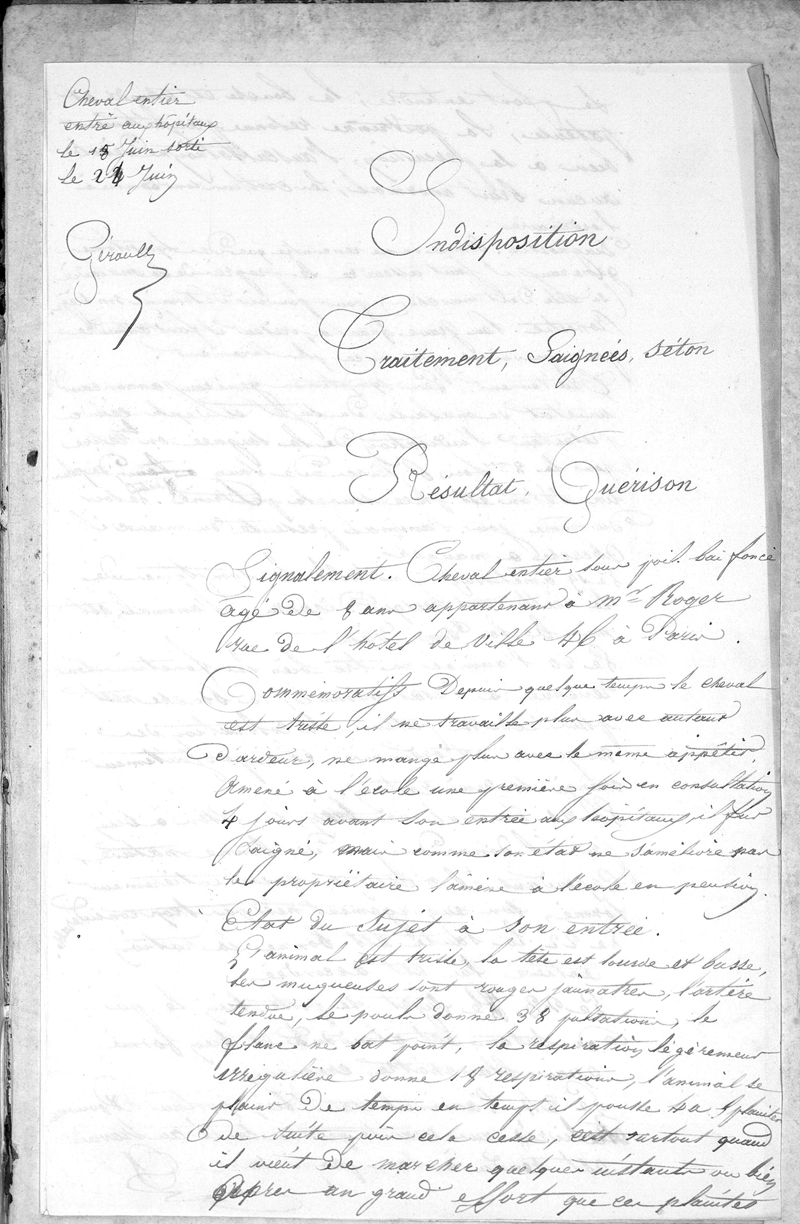 Cheval entier
entré aux hôpitaux
le 18 Juin sorti
le 24 Juin
Girault
Indisposition
Traitement, Saignées, séton
Résultat. Guérison
Signalement. Cheval entier sous poil bai foncé
agé de 8 ans appartenant à Mr Roger
rue de l'hôtel de Ville 46 à Paris.
Commémoratifs Depuis quelque temps le cheval
est triste, il ne travaille plus avec autant
d'ardeur, ne mange plus avec le même appétit.
Amené à l'école une première fois en consultation
4 jours avant son entrée aux hôpitaux il fut
saigné, mais comme son état ne s'améliore pas
le propriétaire l'amène à l'école en pension.
Etat du sujet à son entrée.
L'animal est triste, la tête est lourde et basse,
les muqueuses sont rouges jaunatres, l'artère
tendue, le pouls donne 38 pulsations, le
flanc ne bat point, la respiration légèrement
irregulière donne 18 respirations, l'animal se
plaint de temps en temps il pousse 4 a 5 plaintes
de suite puis cela cesse, c'est surtout quand
il vient de marcher quelques instants ou bien
après un grand effort que ces plaintes